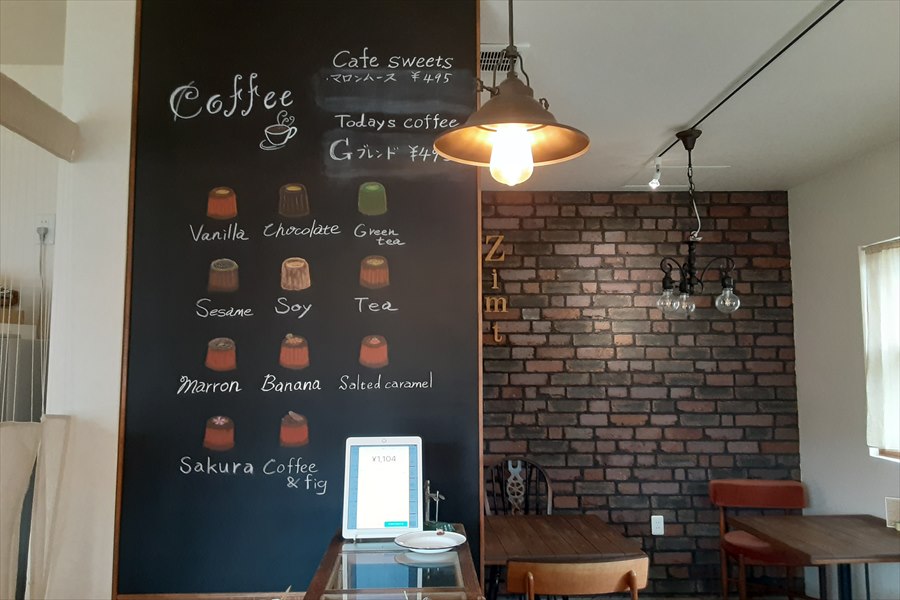 Coffee
Cafe sweets
・マロンムース ¥495
Todays coffee
Gブレンド
Vanilla
Chocolate
Green
tea
Sesame
Soy
Tea
Marron
Banana
Salted caramel
Sakura
Coffee
& fig
¥1,104
Zimt